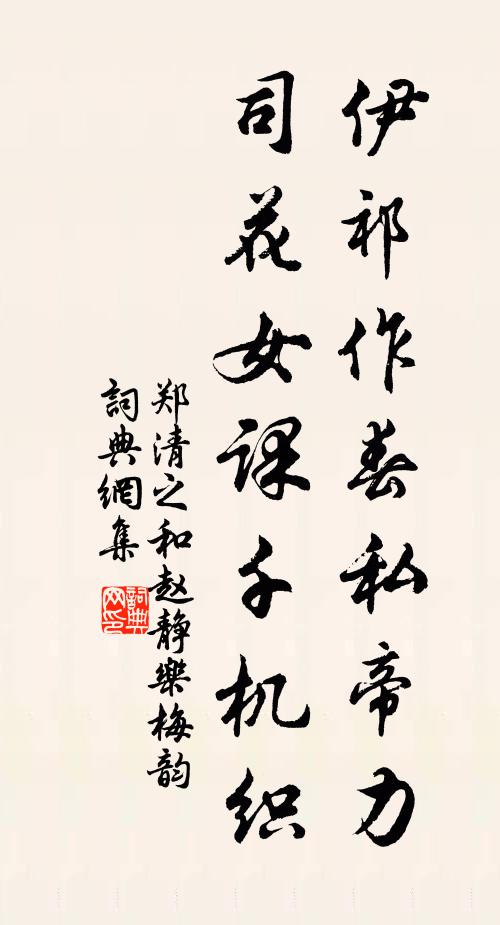 伊祁作春私帝力
司花女課千机织
郑清之和赵静樂梅韵
詞典網集
詞典网印